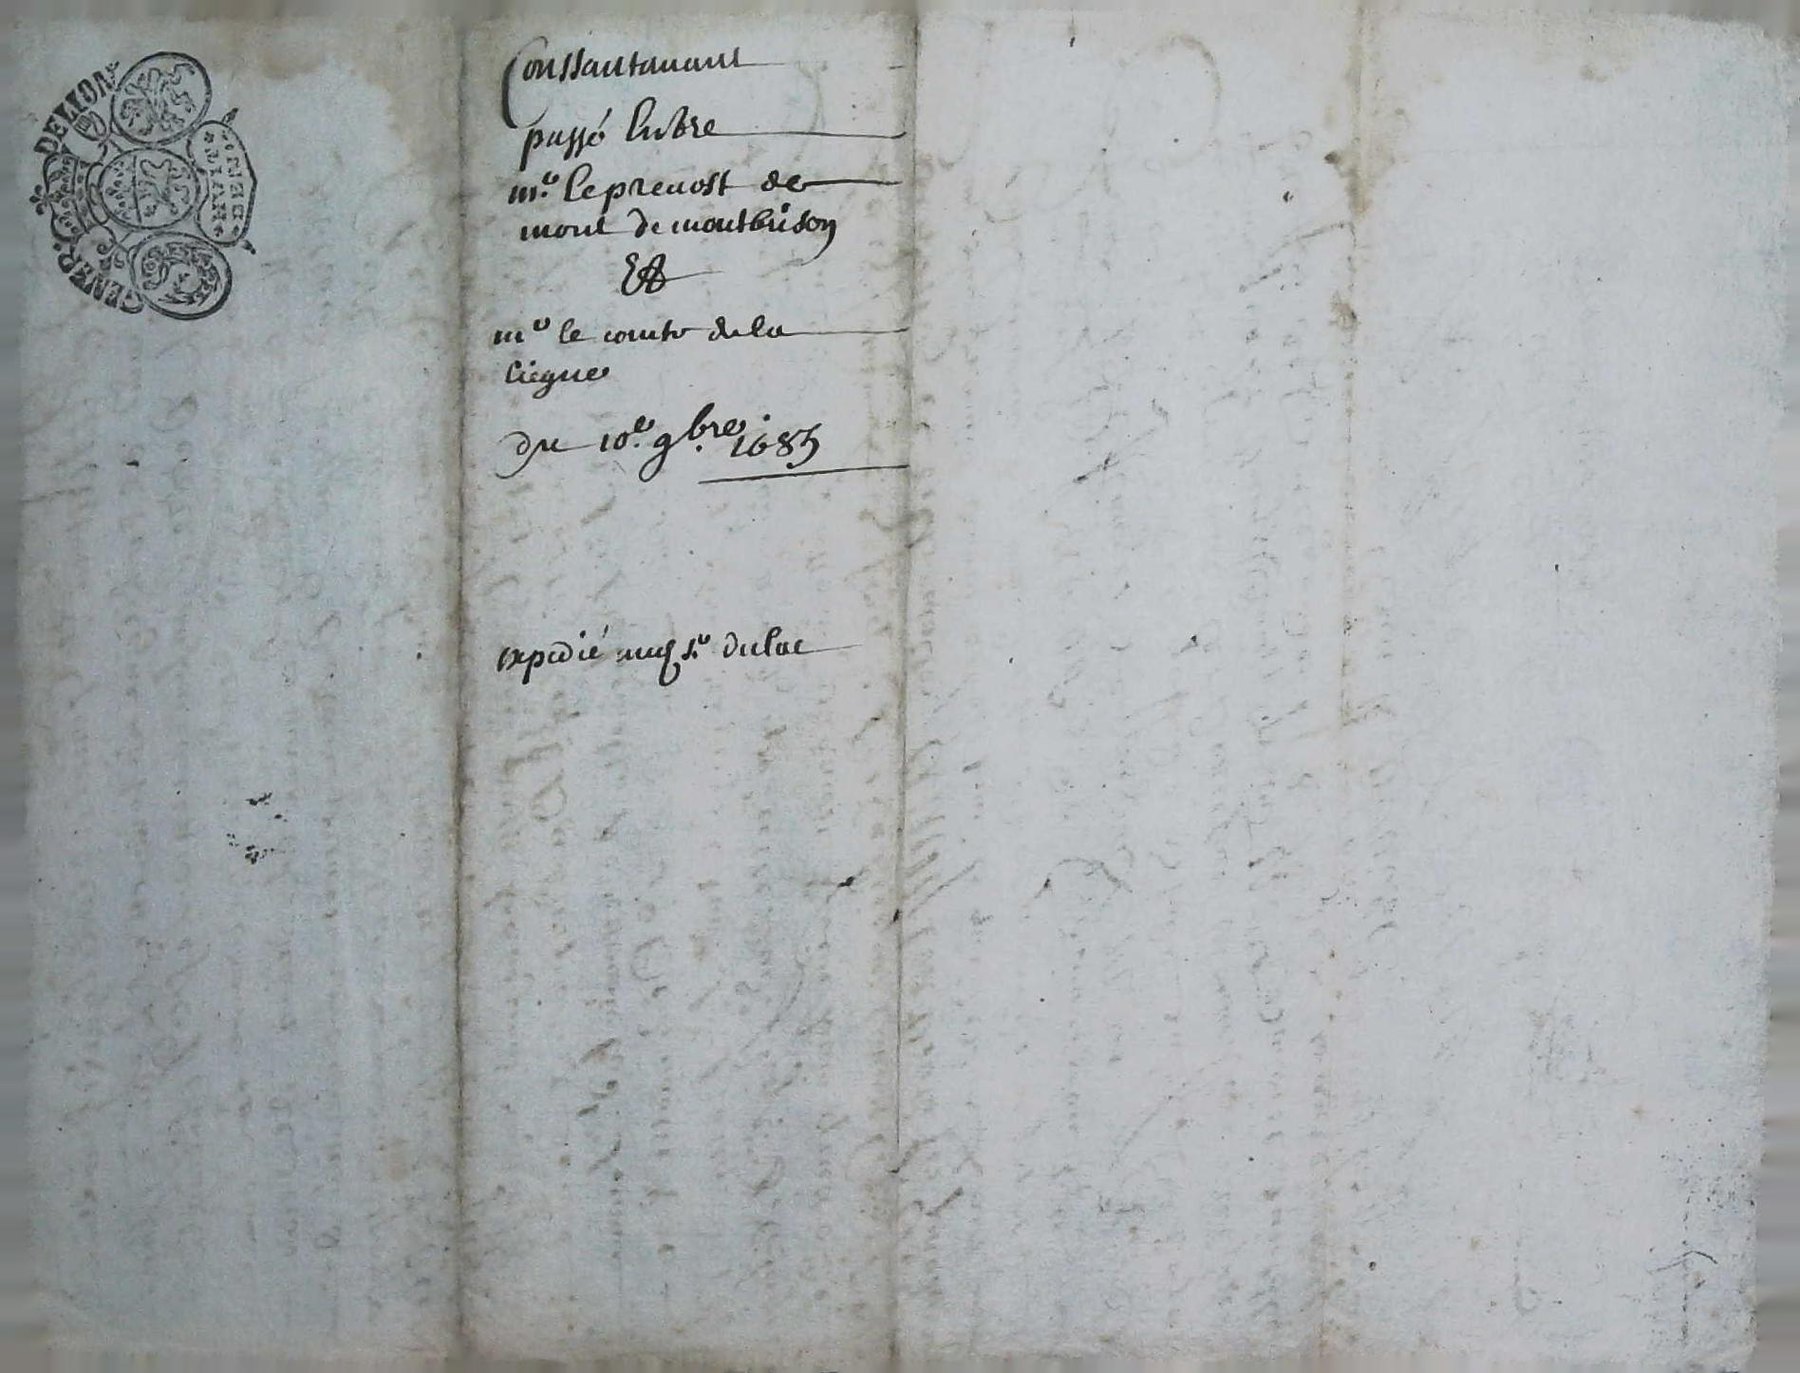 GENER. DE LION
DEUX
Conssantanant
passé Entre
mr. Le prevost de
mont de montbrison
Et
mr le comte de la
liegue
du 10e. 9bre. 1685
expedié dulac